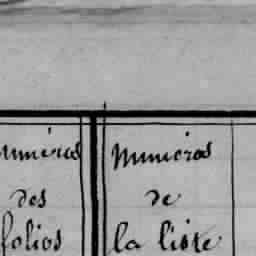 Numéros
des
folios
Numéros
de
la liste